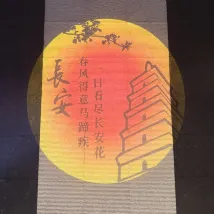 长安
春风得意马蹄疾
一日看尽长安花